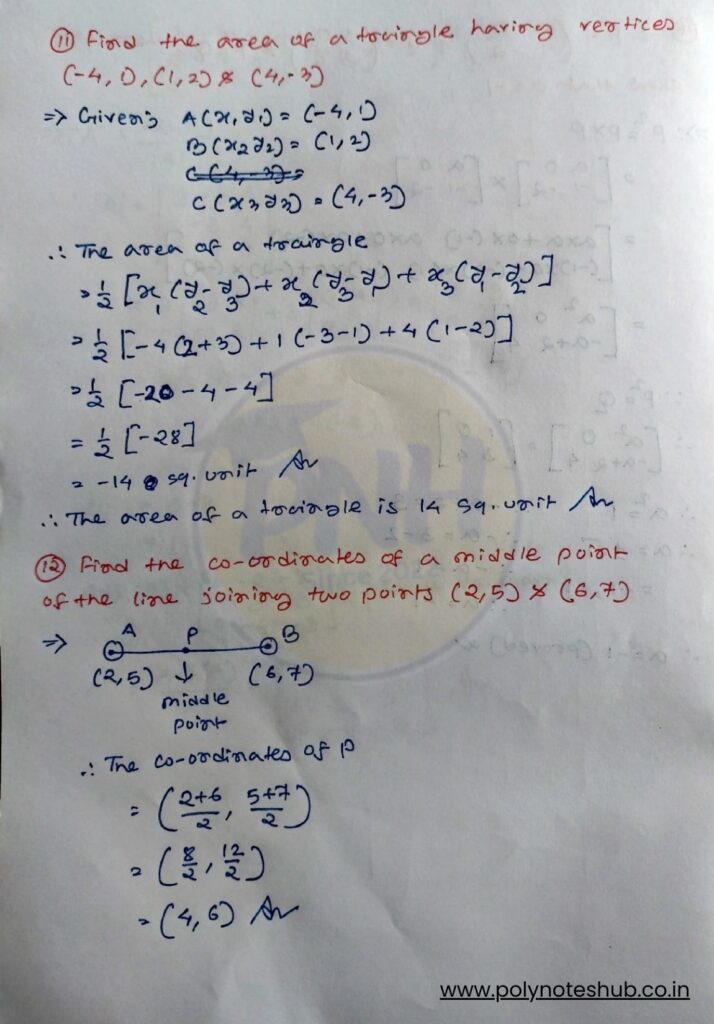 ⑪ Find the area of a traingle having vertices
(-4, 1), (1, 2) & (4, -3)
=> Given; A(x₁ y₁) = (-4, 1)
B(x₂ y₂) = (1, 2)
C(4, -3) =
C(x₃ y₃) = (4, -3)
∴ The area of a traingle
= 1/2 [x₁(y₂-y₃) + x₂(y₃-y₁) + x₃(y₁-y₂)]
= 1/2 [-4(2+3) + 1(-3-1) + 4(1-2)]
= 1/2 [-20 - 4 - 4]
= 1/2 [-28]
= -14 sq. unit An
∴ The area of a traingle is 14 sq. unit An
⑫ Find the co-ordinates of a middle point
of the line joining two points (2,5) & (6,7)
=> A P B
(2,5) ↓ (6,7)
middle
point
∴ The co-ordinates of P
= (2+6/2, 5+7/2)
= (8/2, 12/2)
= (4, 6) An
PNH
www.polynoteshub.co.in